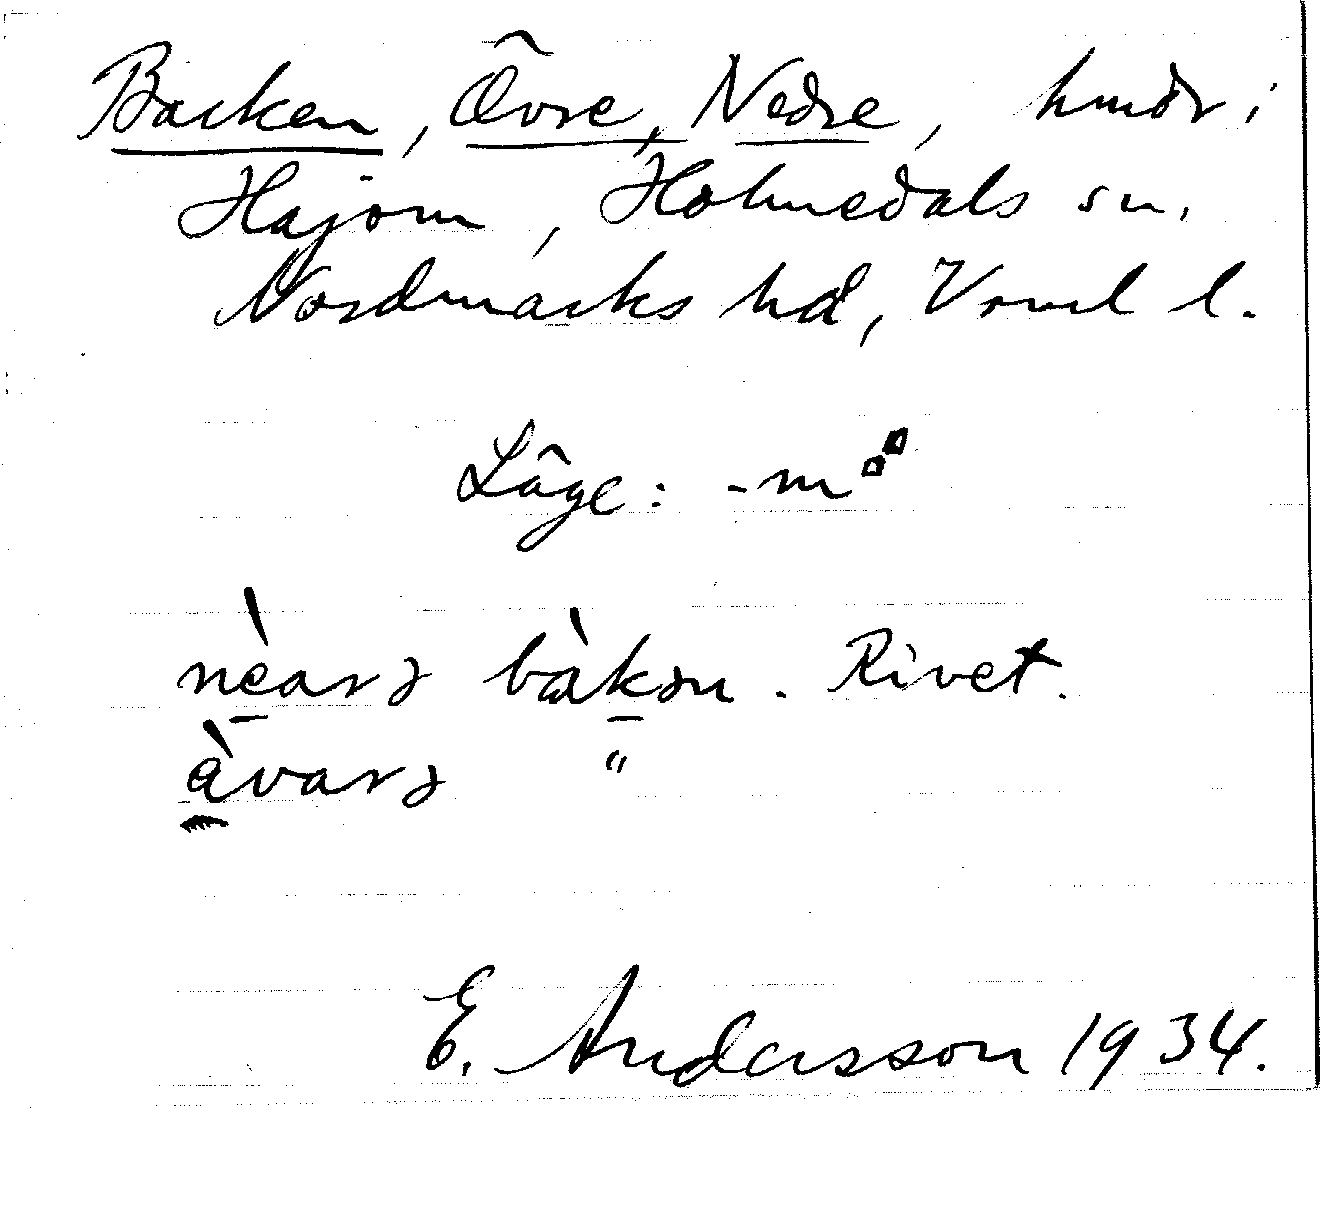 Backen, Övre, Nedre, hmdr i
Hajom, Holmedals sn.
Nordmarks hd, Vrml l.
Läge: -m
neara bakan. Rivet.
åvara "
E. Andersson 1934.